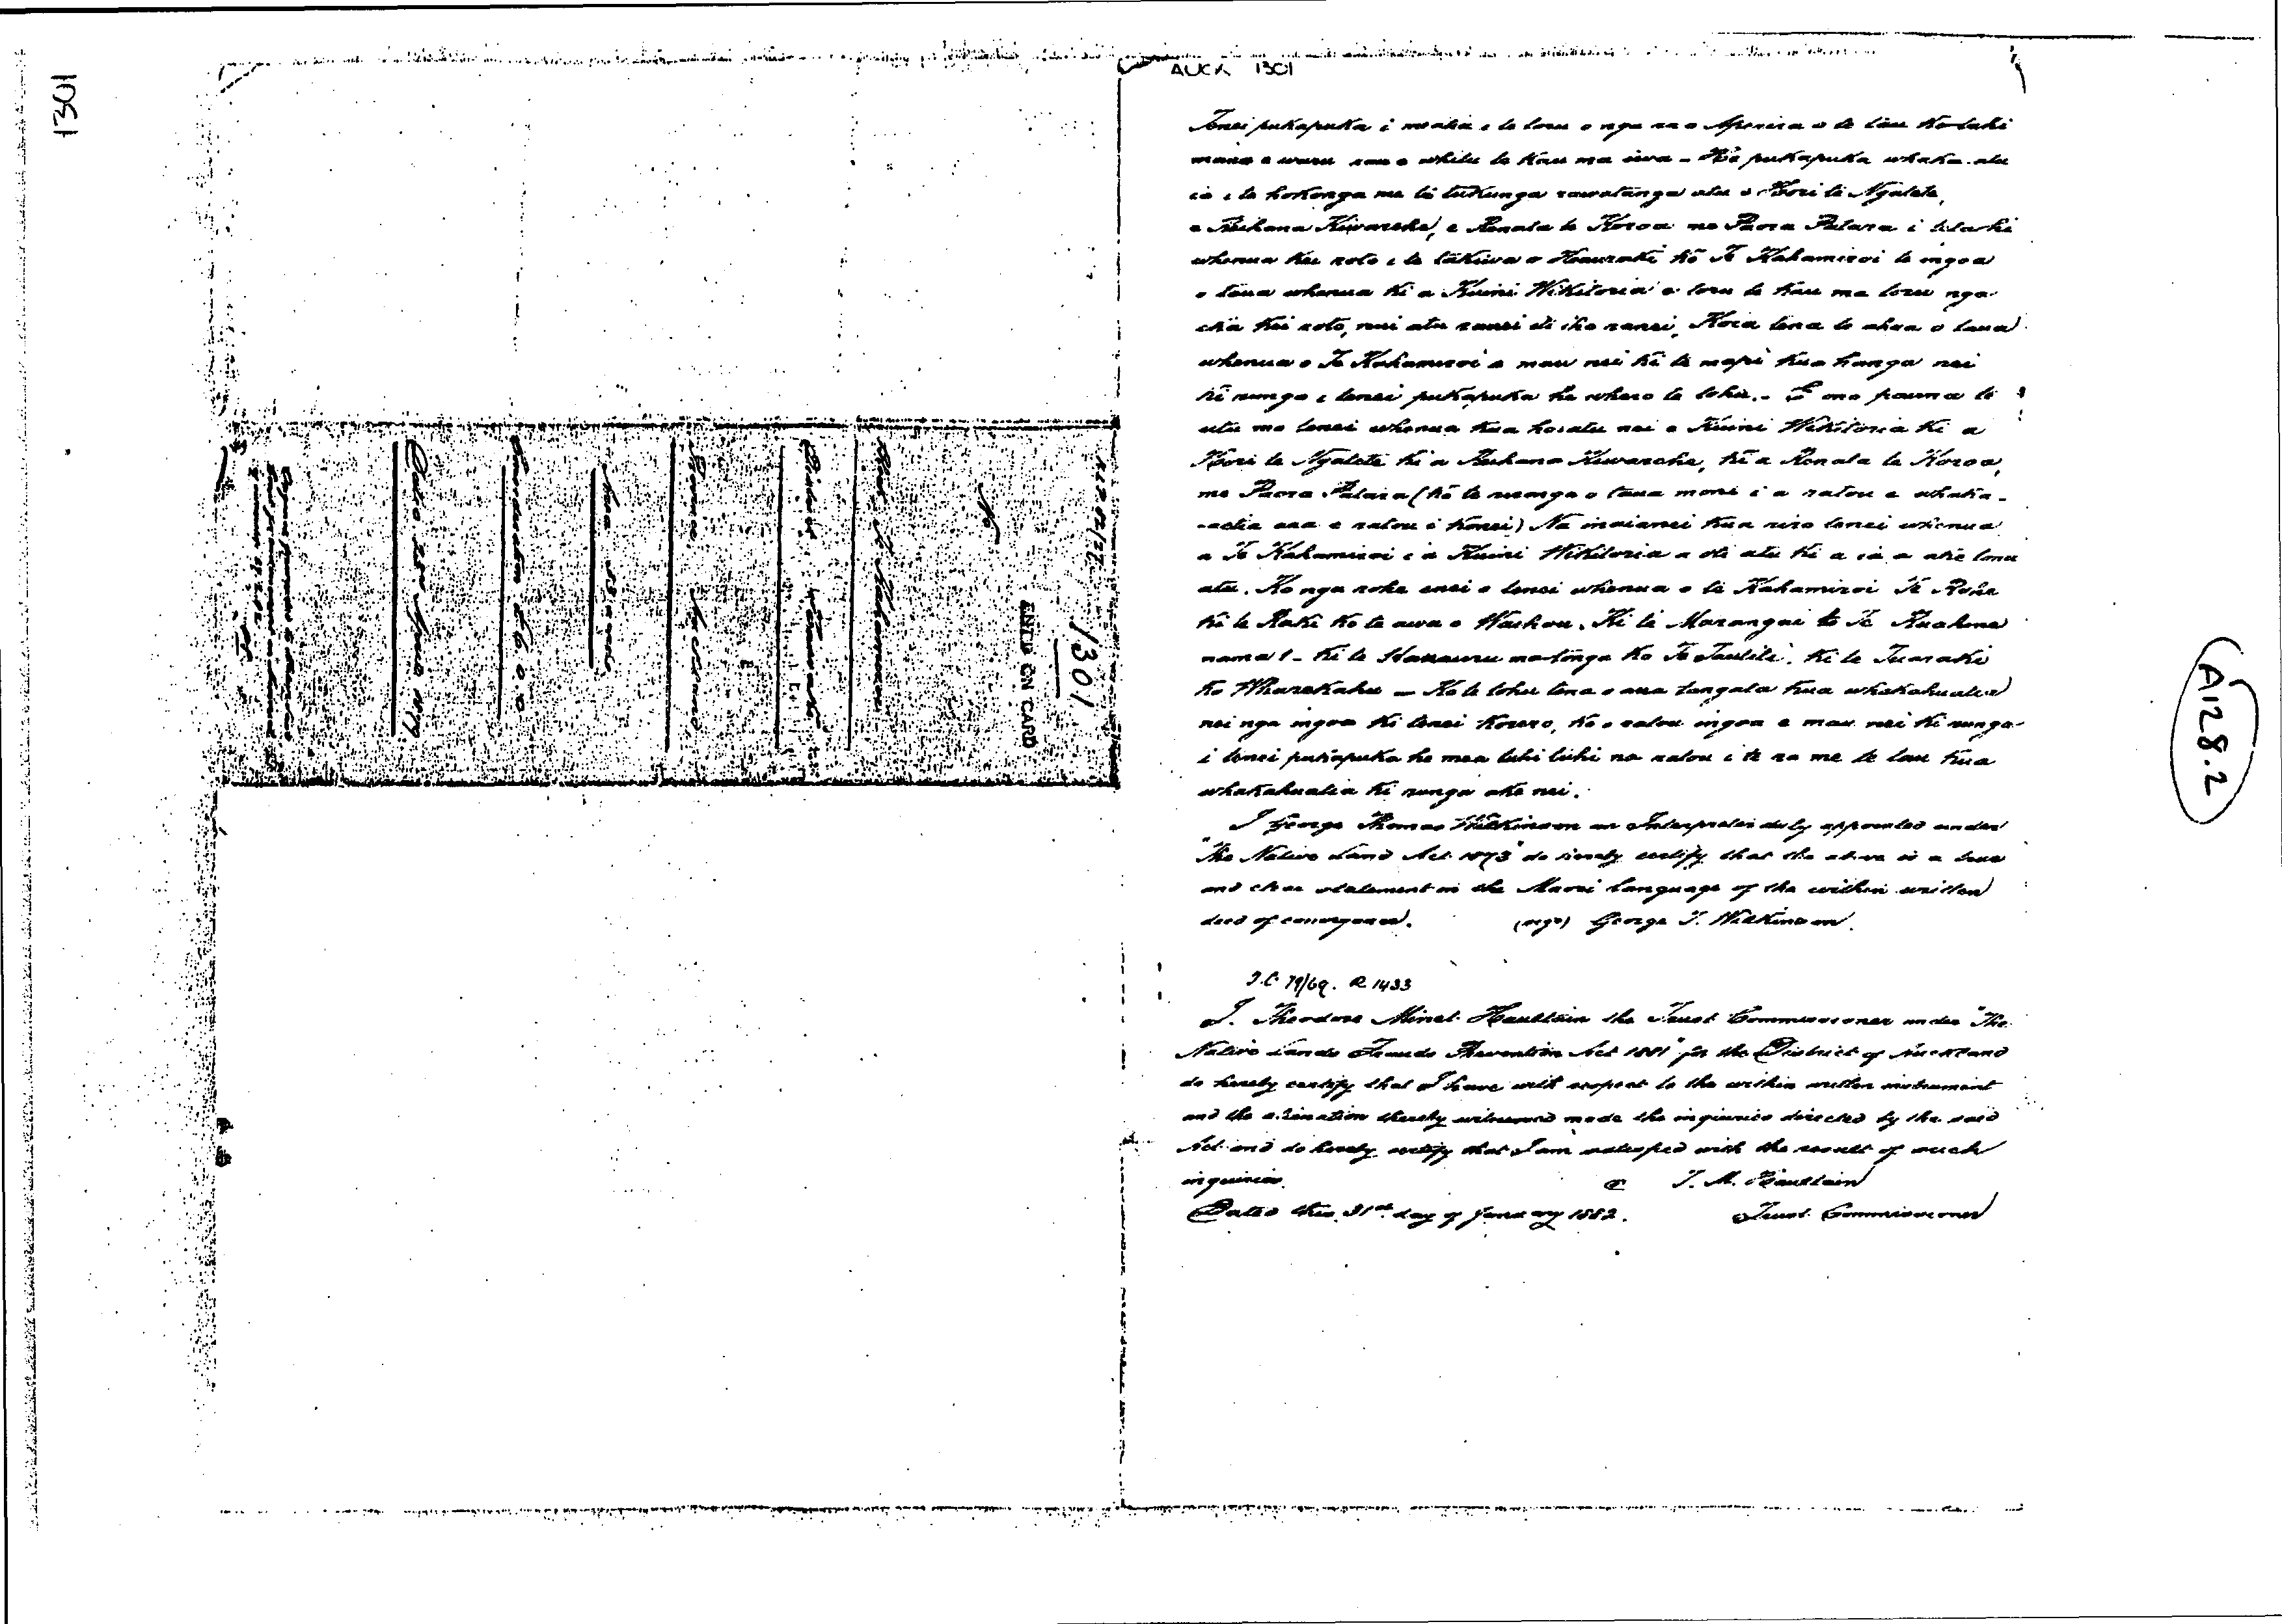 1301
AUCK 1301
Tenei pukapuka i meatia i te toru o nga ra o Aperira o te tau Kotahi
mano e waru rau e whitu te Kau ma iwa - He pukapuka whaka atu
ia i te hokonga me te tukunga rawatanga atu o Hori te Ngatete,
e Reihana Kiwareka, e Renata te Koroa me Paora Patara i tetahi
whenua Kei roto i te takiwa o Hauraki Ko Te Kahamiroi te ingoa
o taua whenua Ki a Kuini Wikitoria e toru te Kau ma toru nga
eka Kei roto, nui atu ranei iti iho ranei, Koia tena te ahua o taua
whenua o Te Kahamiroi e mau nei Ki te mapi Kua hanga nei
Ki runga i tenei pukapuka he whero te tohu. - E ono pauna te
utu mo tenei whenua Kua hoatu nei e Kuini Wikitoria Ki a
Hori te Ngatete Ki a Reihana Kiwareka, Ki a Renata te Koroa,
me Paora Patara (Ko te rironga o taua moni i a ratou e whaka-
-aetia ana e ratou i Konei) Na inaianei Kua riro tenei whenua
a Te Kahamiroi i a Kuini Wikitoria a oti atu Ki a ia a ake tonu
atu. Ko nga rohe enei o tenei whenua o te Kahamiroi Te Rohe
Ki te Raki Ko te awa o Waihou. Ki te Marangai Ko Te Ruahine
nama 1 - Ki te Hauauru ma tonga Ko Te Tautiti. Ki te Tuaraki
Ko Wharekahu - Ko te tohu tena o aua tangata Kua whakahuatia
nei nga ingoa Ki tenei Korero, Ko o ratou ingoa e mau nei Ki runga
i tenei pukapuka he mea tuhi tuhi na ratou i te ra me te tau Kua
whakahuatia Ki runga ake nei.
I George Thomas Wilkinson an Interpreter duly appointed under
"The Native Land Act 1873" do hereby certify that the above is a true
and clear statement in the Maori language of the within written
deed of conveyance. (sgd) George T. Wilkinson.
T.C. 79/69. R 1433
I. Theodore Minet Haultain the Trust Commissioner under "The
Native Lands Frauds Prevention Act 1881" for the District of Auckland
do hereby certify that I have with respect to the within written instrument
and the alienation thereby witnessed made the inquiries directed by the said
Act and do hereby certify that I am satisfied with the result of such
inquiries. T. M. Haultain
Dated this 31st day of January 1882. Trust Commissioner
1301
ENTD ON CARD
No
A128.2